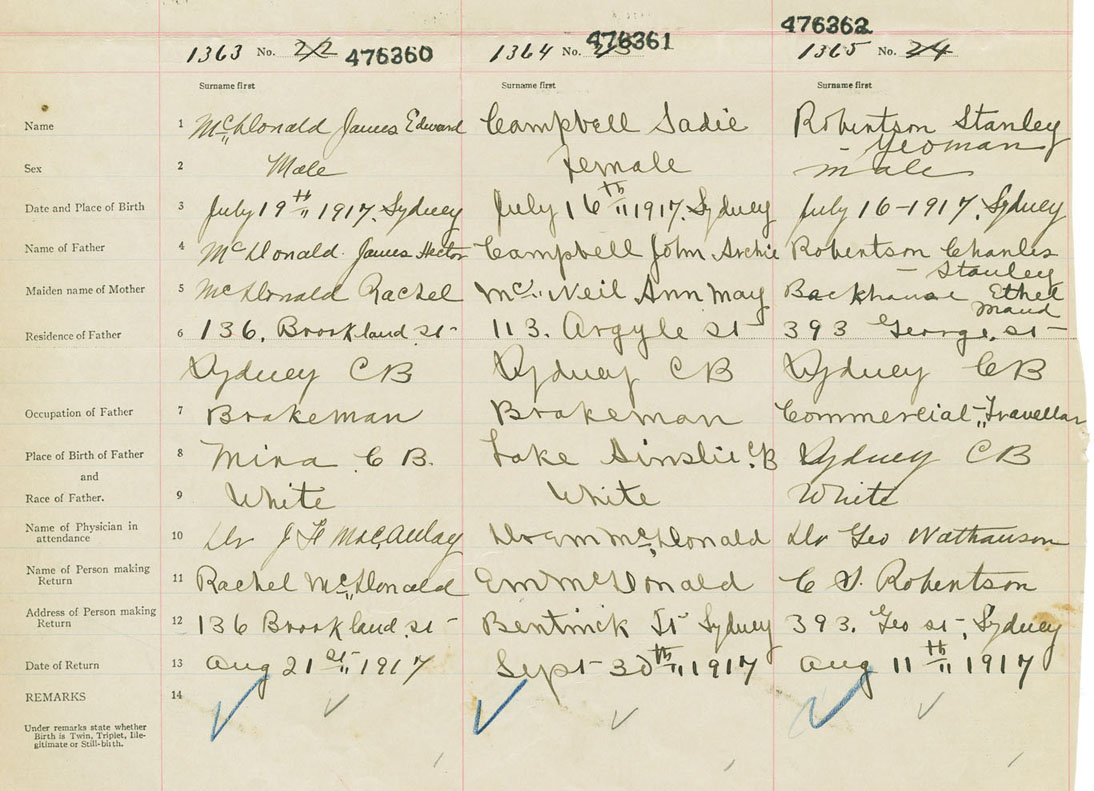 476362
1363 No. 22 476360 1364 No. 476361 1365 No. 24
Surname first Surname first Surname first
Name 1 McDonald James Edward Campbell Sadie Robertson Stanley
Yeoman
Sex 2 Male female male
Date and Place of Birth 3 July 19th 1917. Sydney July 16th 1917. Sydney July 16-1917, Sydney
Name of Father 4 McDonald. James Hector Campbell John Archie Robertson Charles
- Stanley
Maiden name of Mother 5 McDonald Rachel Mc Neil Ann May Backhouse Ethel
Maud
Residence of Father 6 136. Brookland. st 113. Argyle st 393 George. st
Sydney CB Sydney CB Sydney CB
Occupation of Father 7 Brakeman Brakeman Commercial-Travellar
Place of Birth of Father 8 Mira C B. Lake Ainslie CB Sydney CB
and
Race of Father. 9 White White White
Name of Physician in
attendance 10 Dr J F MacAulay Dr E M McDonald Dr Geo Nathanson
Name of Person making
Return 11 Rachel McDonald E M McDonald C S. Robertson
Address of Person making
Return 12 136 Brookland. st Bentinck St Sydney 393. Geo st, Sydney
Date of Return 13 Aug 21st 1917 Sept 30th 1917 Aug 11th 1917
REMARKS 14
Under remarks state whether
Birth is Twin, Triplet, Ille-
gitimate or Still-birth.